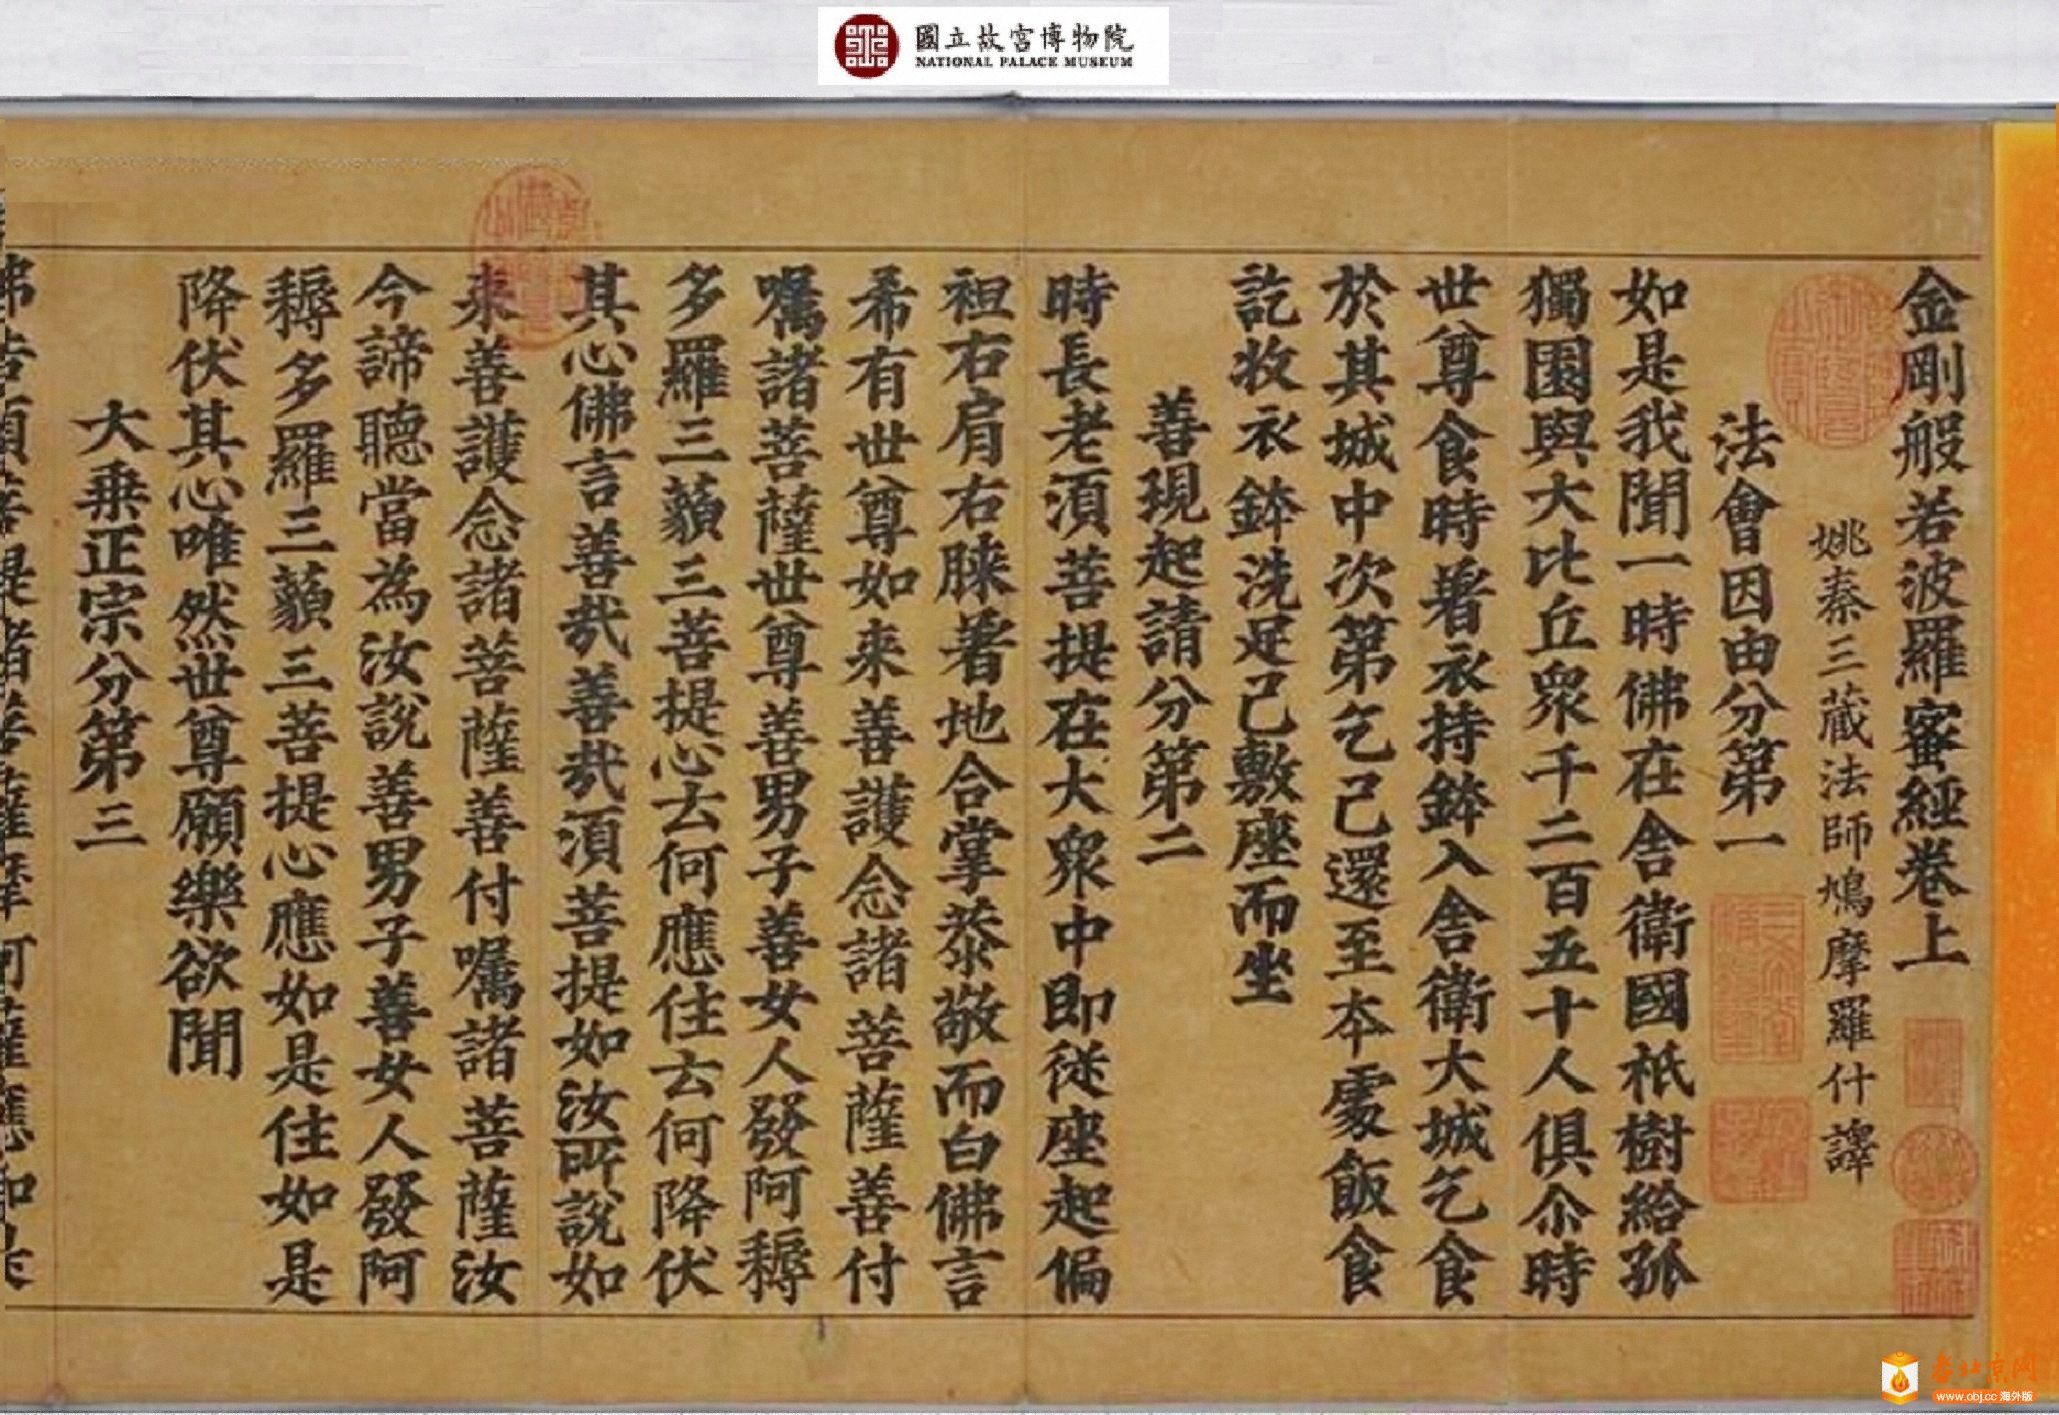 國立故宮博物院
NATIONAL PALACE MUSEUM
金剛般若波羅蜜經卷上
姚秦三藏法師鳩摩羅什譯
法會因由分第一
如是我聞一時佛在舍衛國祇樹給孤
獨園與大比丘眾千二百五十人俱尒時
世尊食時著衣持鉢入舍衛大城乞食
於其城中次第乞已還至本處飯食
訖收衣鉢洗足已敷座而坐
善現起請分第二
時長老須菩提在大眾中即從座起偏
袒右肩右膝著地合掌恭敬而白佛言
希有世尊如來善護念諸菩薩善付
囑諸菩薩世尊善男子善女人發阿耨
多羅三藐三菩提心云何應住云何降伏
其心佛言善哉善哉須菩提如汝所說如
來善護念諸菩薩善付囑諸菩薩汝
今諦聽當為汝說善男子善女人發阿
耨多羅三藐三菩提心應如是住如是
降伏其心唯然世尊願樂欲聞
大乘正宗分第三
www.obj.cc 海外版